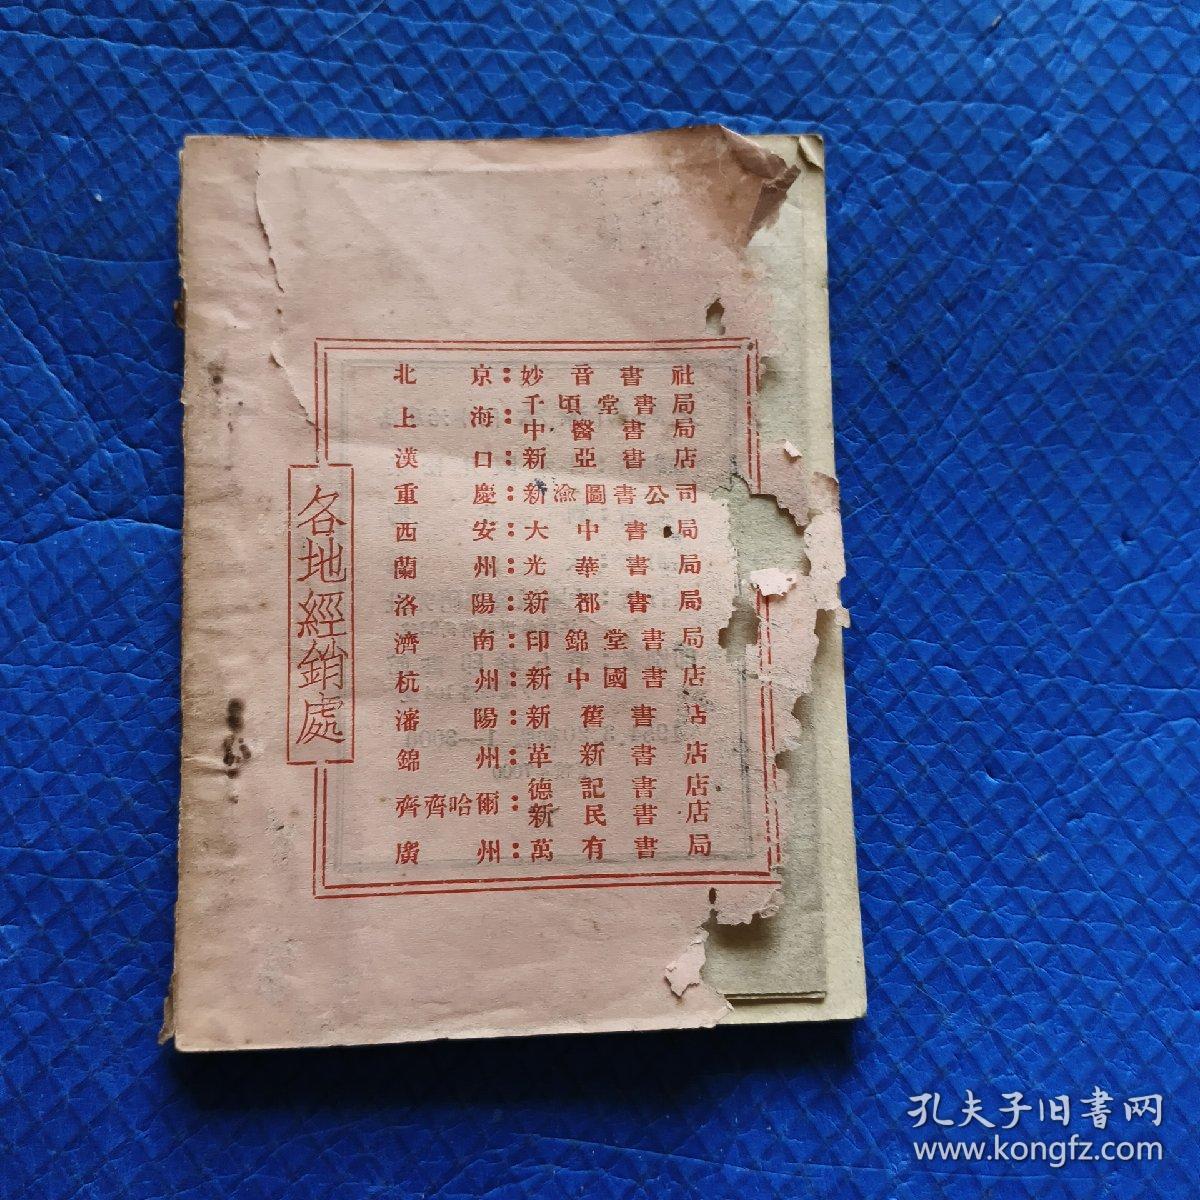 各地經銷處
北京：妙音書社
上海：千頃堂書局
中醫書局
漢口：新亞書店
重慶：新渝圖書公司
西安：大中書局
蘭州：光華書局
洛陽：新都書局
濟南：印錦堂書局
杭州：新中國書店
瀋陽：新舊書店
錦州：革新書店
齊齊哈爾：德記書店
新民書店
廣州：萬有書局
孔夫子旧書网
www.kongfz.com